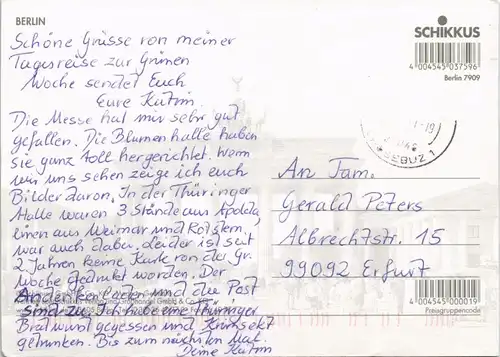 BERLIN
SCHIKKUS
4 004545 037596
Berlin 7909
Schöne Grüsse von meiner
Tagesreise zur Grünen
Woche sendet Euch
Eure Katrin
Die Messe hat mir sehr gut
gefallen. Die Blumenhalle haben
sie ganz toll hergerichtet. Wenn
wir uns sehen zeige ich euch
Bilder davon. In der Thüringer
Halle waren 3 Stände aus Apolda,
einen aus Weimar und
war auch dabei. Leider ist seit
2 Jahren keine Karte von der Gr.
Woche gedruckt worden. Der
Andenkenladen und die Post
sind zu. Ich habe eine Thüringer
Bratwurst gegessen und Krimsekt
getrunken. Bis zum nächsten Mal.
Deine Katrin
An Fam.
Gerald Peters
Albrechtstr. 15
99092 Erfurt
4 004545 000019
Preisgruppencode